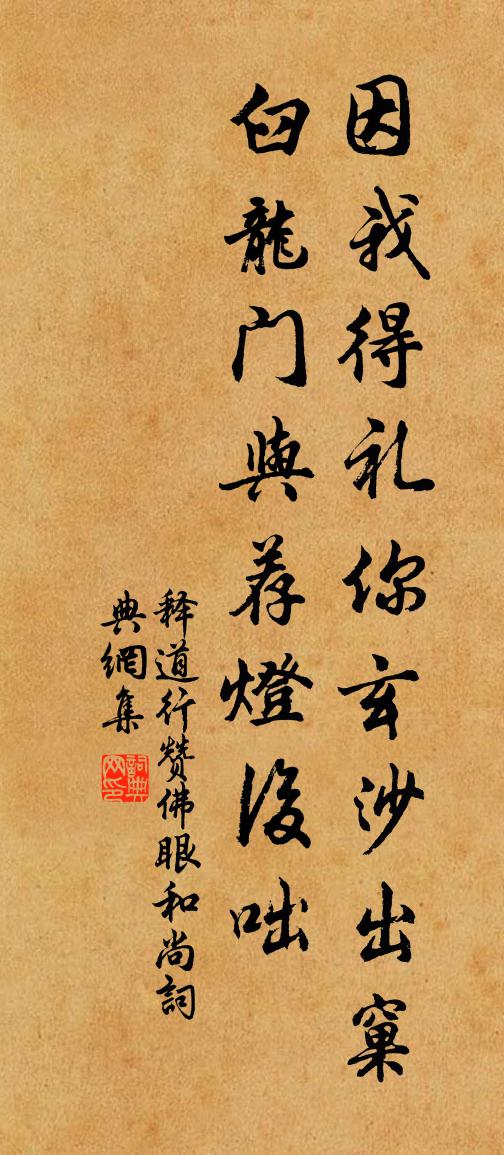 因我得礼你玄沙出窠
臼龍门與荐燈後咄
释道行赞佛眼和尚詞
典網集
詞典
网印